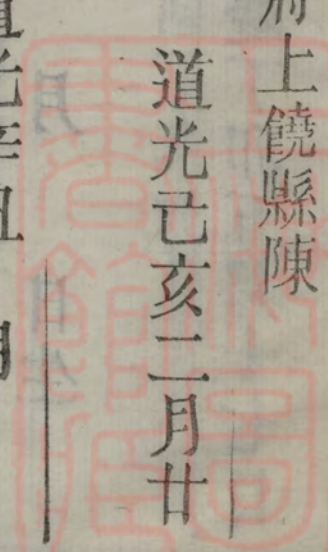 府上饒縣陳
道光己亥二月廿
道光辛丑